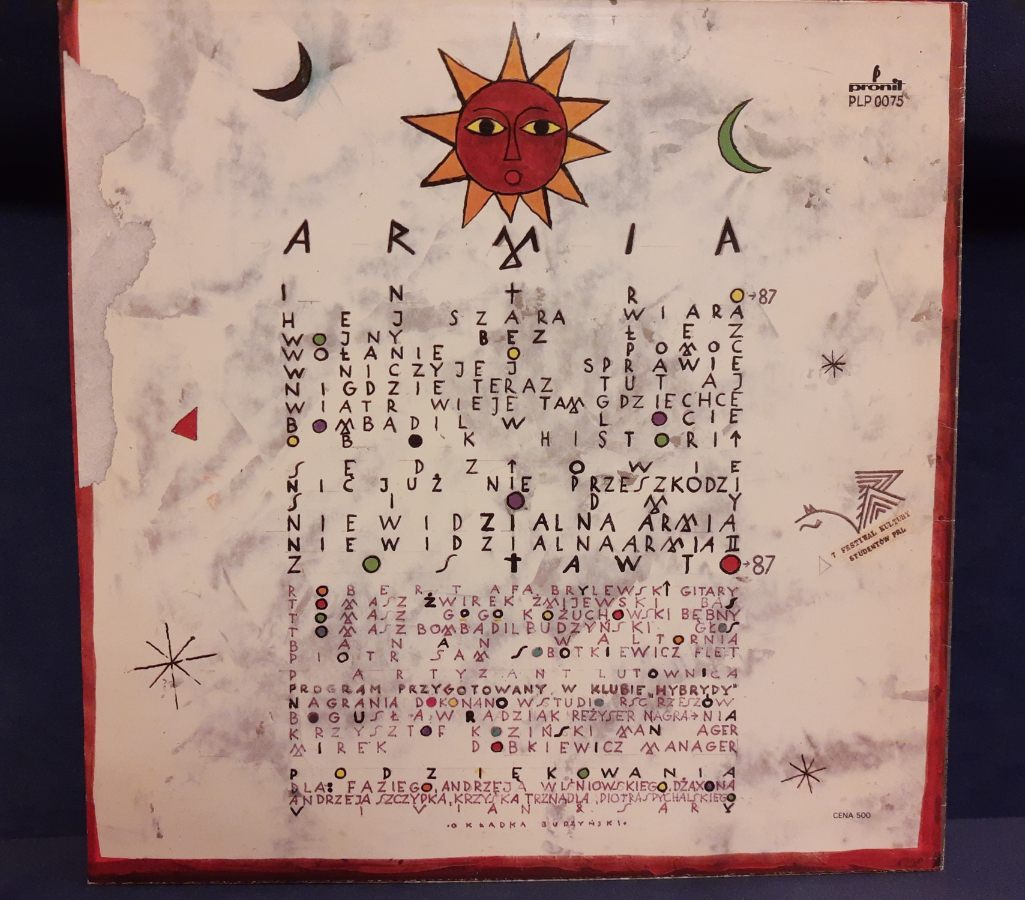 pronit
PLP 0075
A R M I A
I N † R O → 87
H E J SZARA WIARA
WOJNY BEZ ŁEZ
WOŁANIE O POMOC
W NICZYJEJ SPRAWIE
NIGDZIE TERAZ TUTAJ
WIATR WIEJE TAM GDZIE CHCE
BOMBADIL W LOCIE
OBOK HISTORII
SĘDZIOWIE
NIC JUŻ NIE PRZESZKODZI
NIEWIDZIALNA ARMIA
NIEWIDZIALNA ARMIA II
ZOSTAWTO → 87
ROBERT AFA BRYLEWSKI GITARY
TOMASZ ŻWIREK ŻMIJEWSKI BAS
TOMASZ GOGO KOŻUCHOWSKI BĘBNY
TOMASZ BOMBADIL BUDZYŃSKI GŁOS
BANAN WALTORNIA
PIOTR SAM SOBOTKIEWICZ FLET
PARTYZANT LUTOWNICA
PROGRAM PRZYGOTOWANY W KLUBIE „HYBRYDY"
NAGRANIA DOKONANO W STUDIO RSC RZESZÓW
BOGUSŁAW RADZIAK REŻYSER NAGRANIA
KRZYSZTOF KOZIŃSKI MANAGER
MIREK DOBKIEWICZ MANAGER
PODZIĘKOWANIA
DLA: FAZIEGO, ANDRZEJA WIŚNIOWSKIEGO, DŻAXONA
ANDRZEJA SZCZYPKA, KRZYŚKA TRZNADLA, PIOTRA SPYCHALSKIEGO
VIVIAN & SARY
OKŁADKA BUDZYŃSKI
7 FESTIWAL KULTURY
STUDENTÓW PRL
CENA 500